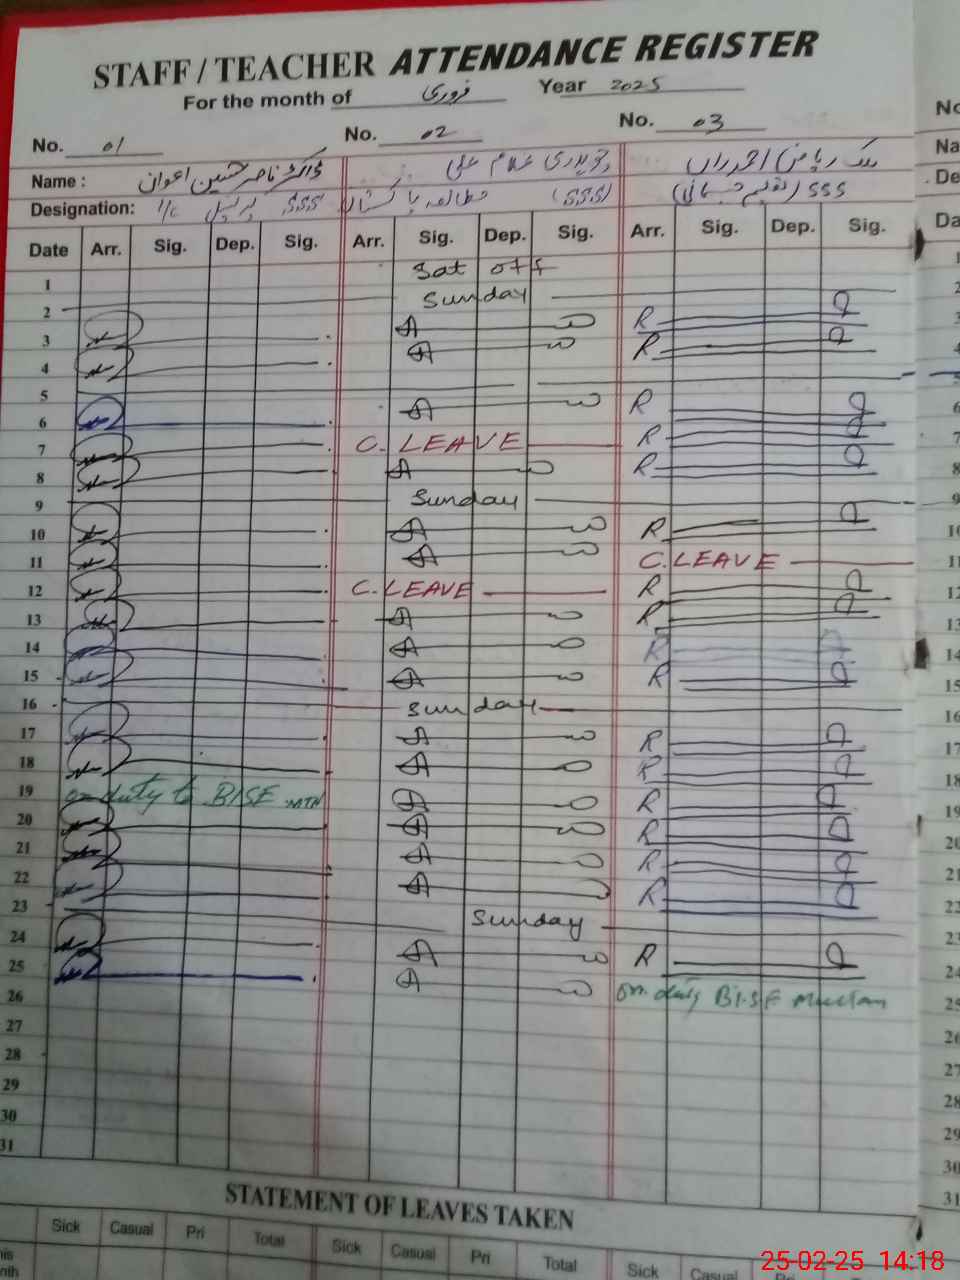 STAFF / TEACHER ATTENDANCE REGISTER
For the month of فروری Year 2025
No. 01 No. 02 No. 03
Name : ڈاکٹر ناصر حسین اعوان چوہدری غلام علی ملک ریاض احمد
Designation: I/C پرنسپل SSS مطالعہ پاکستان (SSS) SSS (تعلیم جسمانی)
Date Arr. Sig. Dep. Sig. Arr. Sig. Dep. Sig. Arr. Sig. Dep. Sig.
1 Sat off
2 Sunday
3 R
4 R
5
6 R
7 C. LEAVE R
8 R
9 Sunday
10 R
11 C. LEAVE
12 C. LEAVE R
13 R
14 R
15 R
16 Sunday
17 R
18 R
19 on duty to BISE MTN R
20 R
21 R
22 R
23 Sunday
24 R
25 on duty BISE Multan
26
27
28
29
30
31
STATEMENT OF LEAVES TAKEN
Sick Casual Pri Total Sick Casual Pri Total Sick Casual
25-02-25 14:18